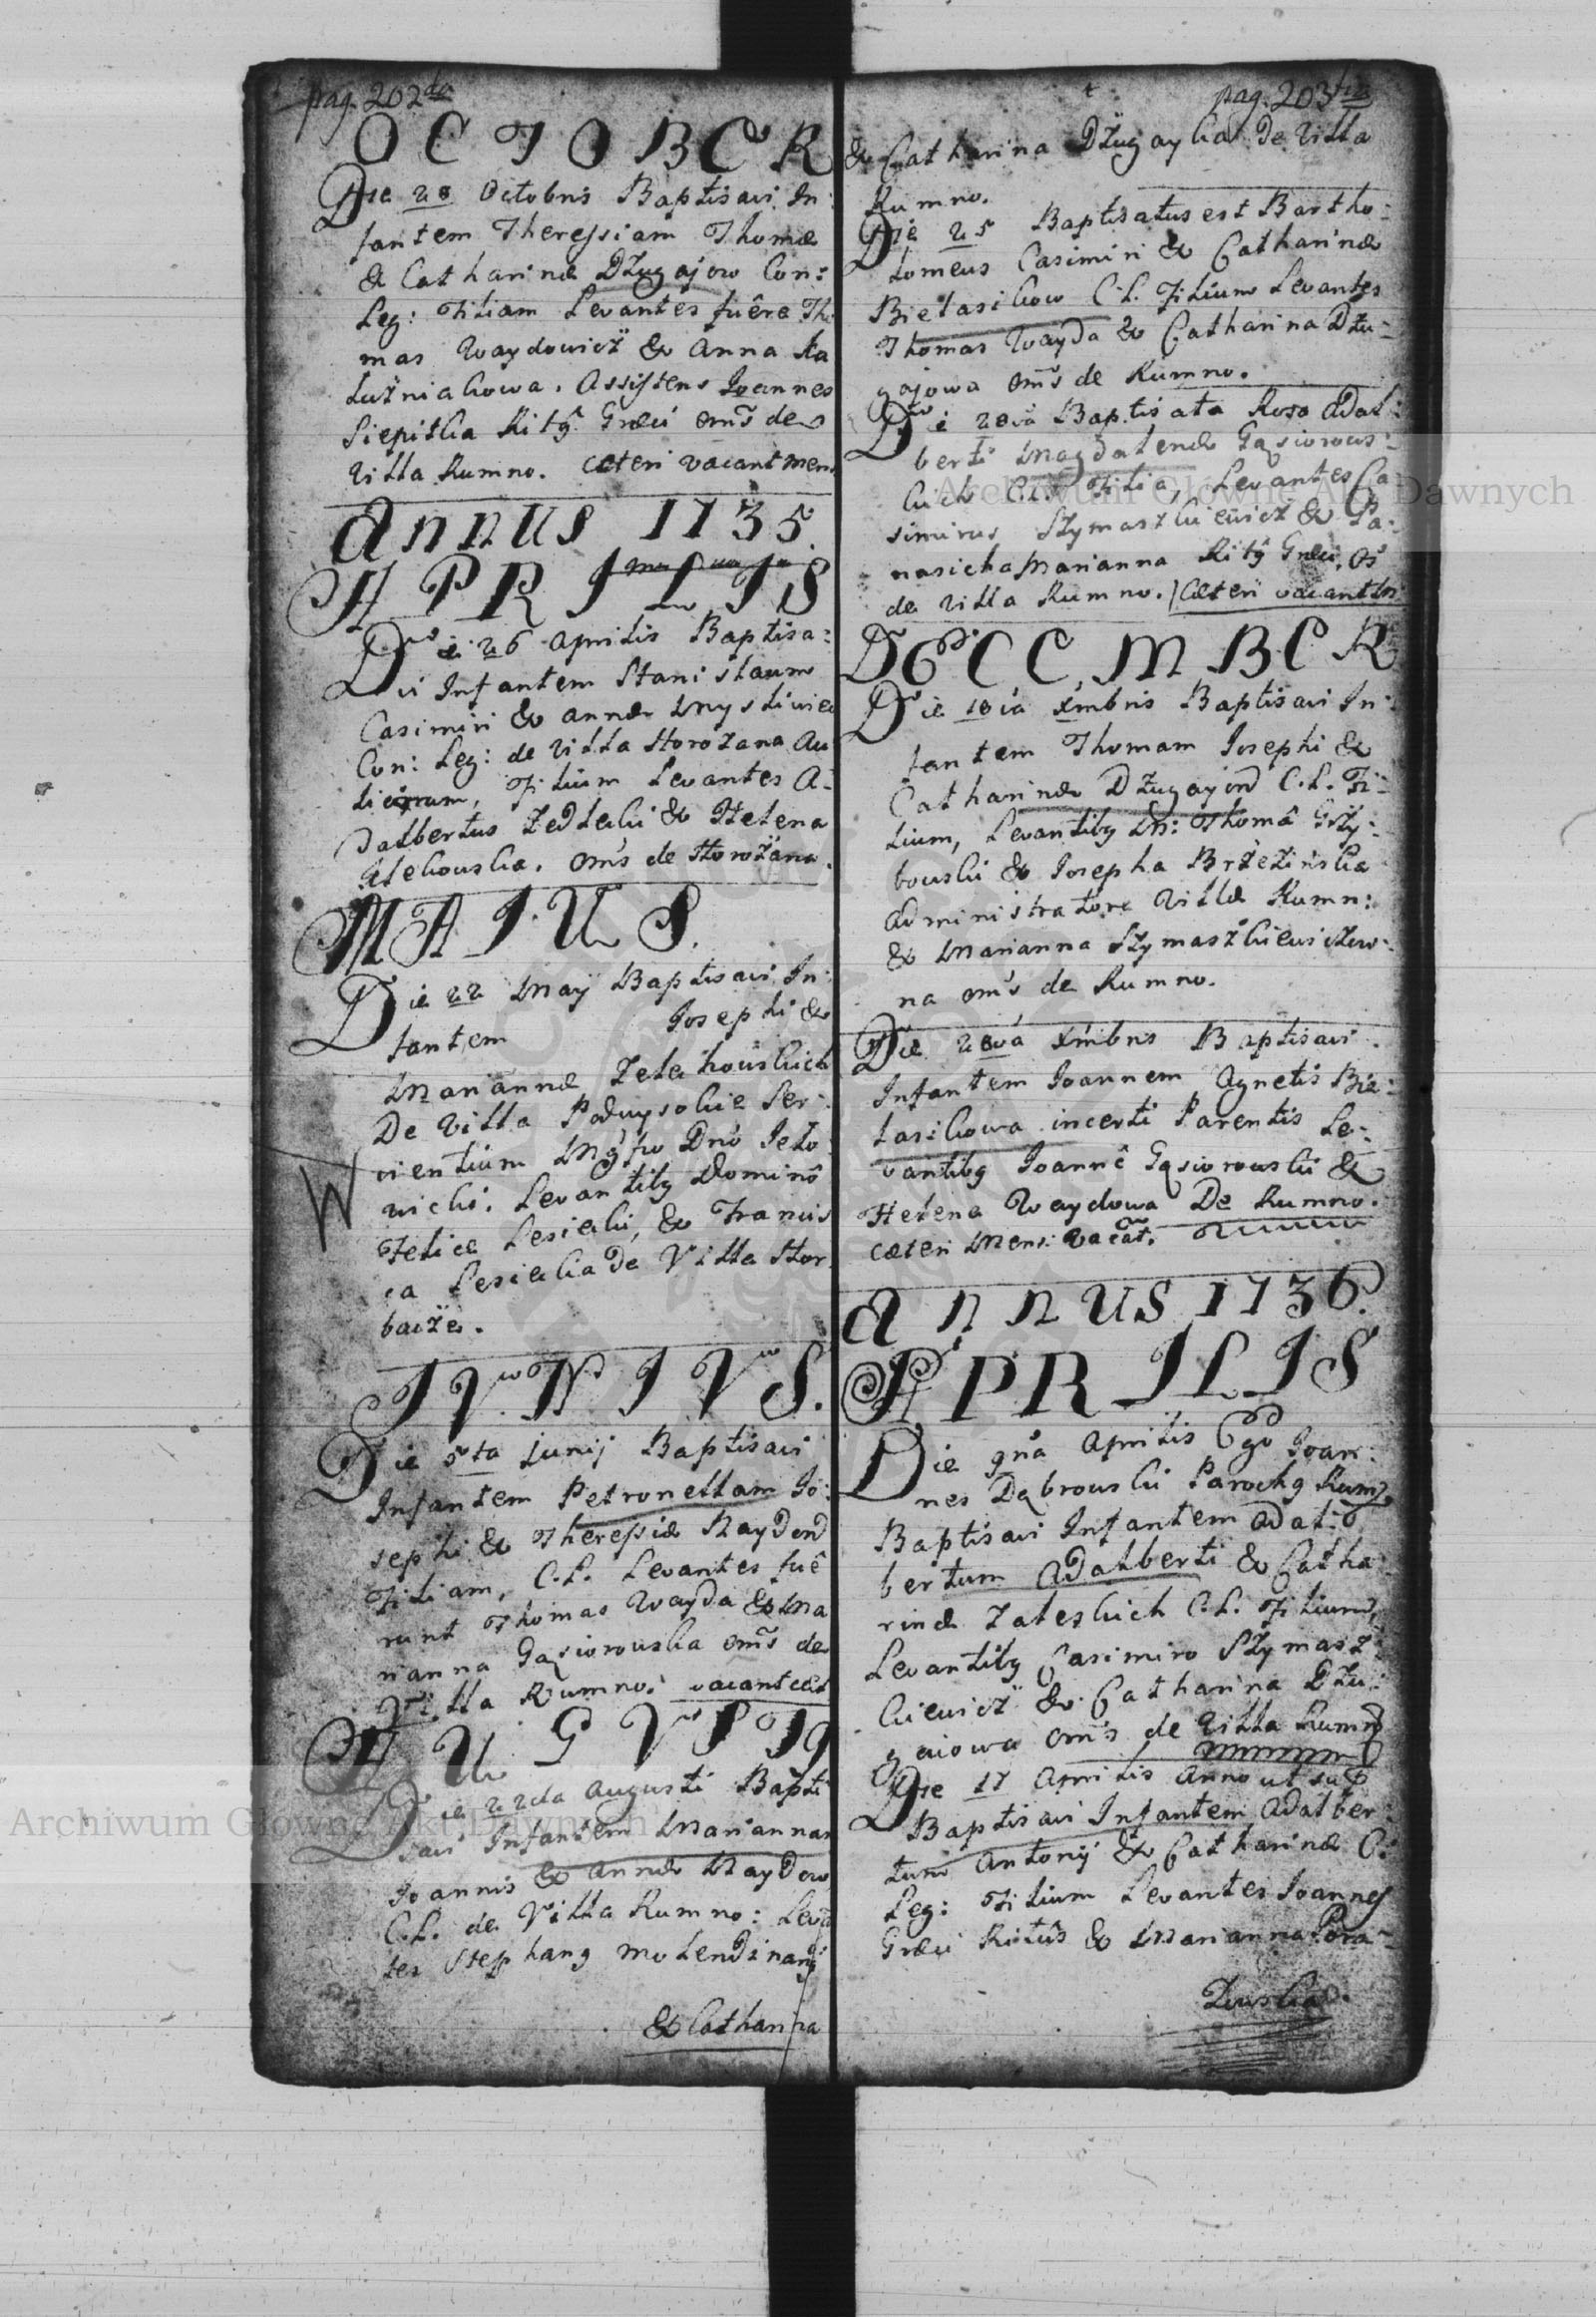 pag. 202da
OCTOBER
Die 28 Octobris Baptisavi In:
fantem Theressiam Thomæ
& Catharinæ Dźugajow Con:
Leg: Filiam Levantes fuêre Tho
mas Waydowicz & Anna Ka
łuźniakowa. Assistens Joannes
Ritg Græci oms de
Villa Rumno. Cæteri vacant mens
Annus 1735.
APRILIS
Die 26 Aprilis Baptisa:
vi Infantem Stanislaum
Casimiri & Annæ
Con: Leg: de Villa Horożana Au
licorum, Filium Levantes A:
dalbertus Zedlecki & Helena
oms de Horożana.
MAIUS.
Die 22 May Baptisavi In:
fantem Josephi &
Mariannæ Zelechouskich
De Villa Poduysokie Ser:
vientium Mgfco Dno Jeło
wicki. Levantibg Domino
Felice Lesiecki, & Francis
ca Lesiecka de Villa Hor
bacze.
IVNIVS.
Die 5ta Junij Baptisavi
Infantem Petronellam Jo:
sephi & Theressiæ Waydow
Filiam, C.L. Levantes fuê
runt Thomas Wayda & Ma
rianna Gąsiorouska oms de
Villa Rumno. vacant cæt
AUGVSTg
Die 22da Augusti Bapti
savi Infantem Mariannam
Joannis & Annæ Waydow
C.L. de Villa Rumno: Levan
tes Stephang Molendinarg
& Catharina
pag. 203tia
& Catharina Dźugayka De Villa
Rumno.
Die 25 Baptisatus est Bartho:
lomeus Casimiri & Catharinæ
Bielasikow C.L. Filium Levantes
Thomas Wayda & Catharina Dźu:
gajowa oms de Rumno.
Die 28va Baptisata Rosa Adal:
berti Magdalenæ Gąsiorows:
kich C.L. Filia, Levantes Ca
simirus Szymaszkiewicz & Pa:
nasicha Marianna Ritg Græci, os
de Villa Rumno. Cæteri vacant
DECEMBER
Die 18va Xmbris Baptisavi In:
fantem Thomam Josephi &
Catharinæ Dźugajow C.L. Fi:
lium, Levantibg Mn: Thomâ Grzy:
bouski & Josepha Brzezińska
Administratore Villæ Rumn:
& Marianna Szymaszkiewiczow:
na oms de Rumno.
Die 28va Xmbris Baptisavi
Infantem Joannem Agnetis Bie:
lasikowa incerti Parentis Le:
vantibg Joanne Gąsiorouski &
Helena Waydowa De Rumno.
cæteri Mens: vacāt.
Annus 1736.
APRILIS
Die 9na Aprilis Ego Joan:
nes Dąbrouski Parochg Rumn
Baptisavi Infantem Adal:
bertum Adalberti & Catha
rinæ Zaleskich C.L. Filium,
Levantibg Casimiro Szymasz:
kiewicz & Catharina Dźu:
gaiowa oms de Villa Rumno
Die 17 Aprilis Anno ut sup
Baptisavi Infantem Adalber:
tum Antonij & Catharinæ C:
Leg: Filium Levantes Joannes
Græci Ritûs & Marianna Pora:
Dawnych
Archiwum Główne Akt Dawnych
Archiwum Główne Akt Dawnych